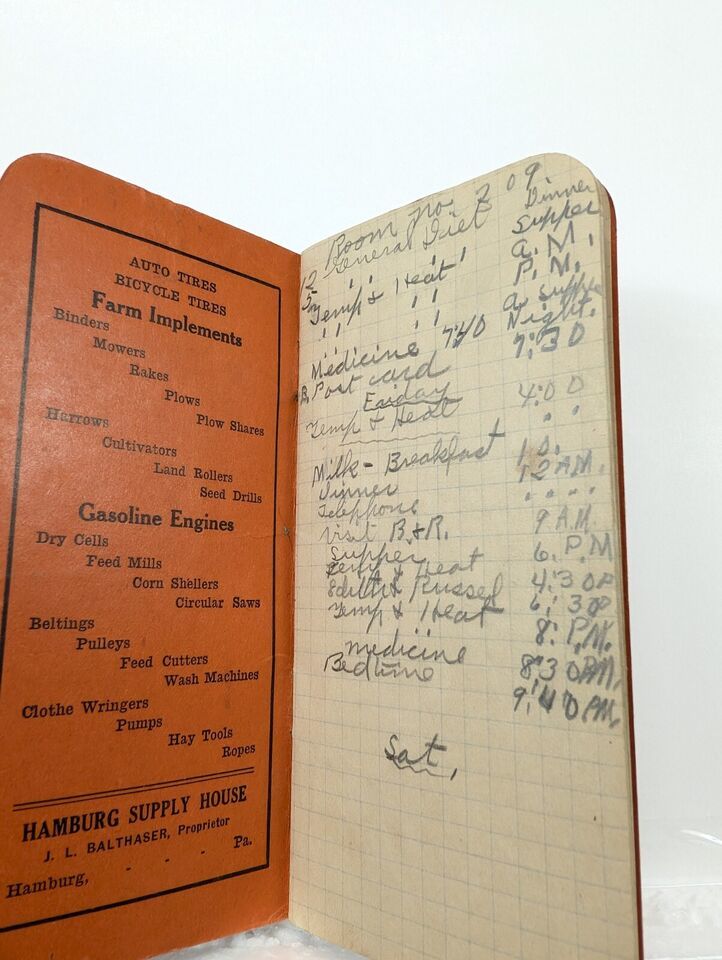 AUTO TIRES
BICYCLE TIRES
Farm Implements
Binders
Mowers
Rakes
Plows
Harrows Plow Shares
Cultivators
Land Rollers
Seed Drills
Gasoline Engines
Dry Cells
Feed Mills
Corn Shellers
Circular Saws
Beltings
Pulleys
Feed Cutters
Wash Machines
Clothe Wringers
Pumps
Hay Tools
Ropes
HAMBURG SUPPLY HOUSE
J. L. BALTHASER, Proprietor
Hamburg, - - - Pa.
Room no. 209.
12 General Diet Dinner
5 " " Supper
Temp & Heat A.M.
" " " P.M.
" " a. supper
Medicine 7:40 Night.
Post card 7:30
Friday
Temp & Heat 4:00
Milk - Breakfast " "
Dinner
Telephone 12 A.M.
Visit B. & R. " " " "
Supper 9 A.M.
Temp & Heat 6. P.M
Edith & Russel 4:30 P
Temp & Heat 6:30 P
8: P.M.
medicine 8:30 P.M.
Bedtime 9:40 P.M.
Sat.